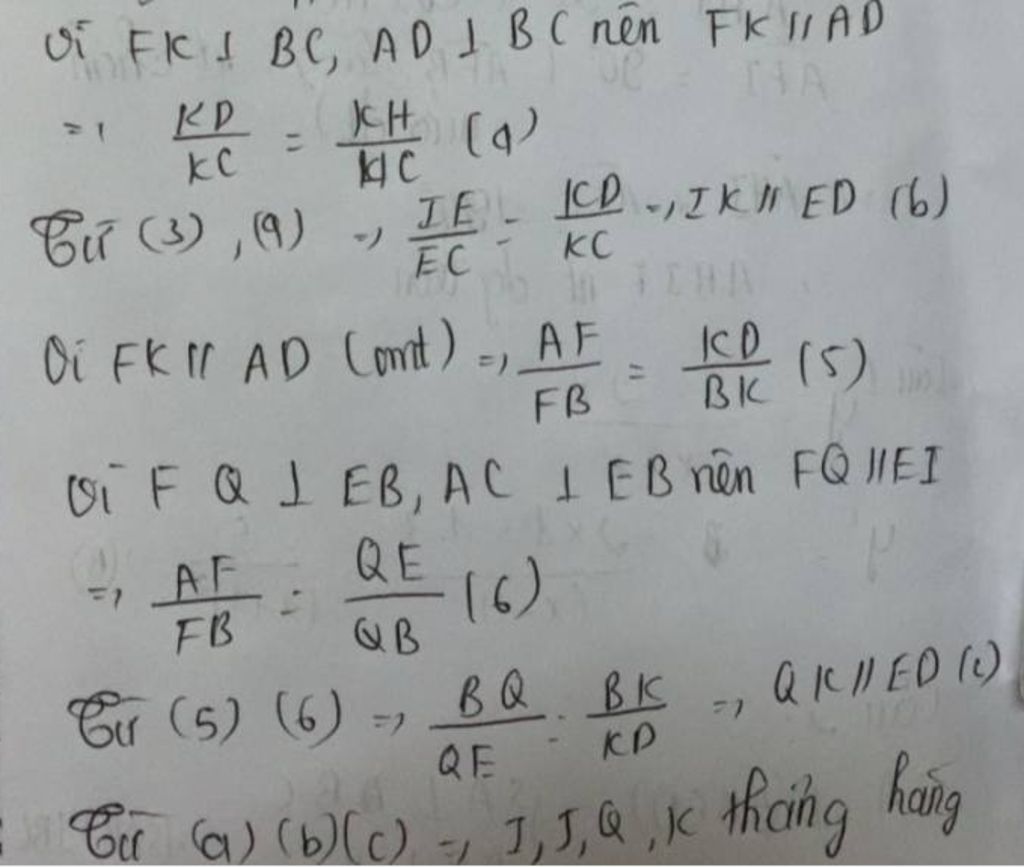 Vì FK ⊥ BC, AD ⊥ BC nên FK // AD
=> KD/KC = KH/HC (4)
Từ (3), (4) => IE/EC = KD/KC => IK // ED (b)
Vì FK // AD (cmt) => AF/FB = KD/BK (5)
Vì FQ ⊥ EB, AC ⊥ EB nên FQ // EI
=> AF/FB = QE/QB (6)
Từ (5) (6) => BQ/QE = BK/KD => QK // ED (c)
Từ (a) (b) (c) => I, J, Q, K thẳng hàng